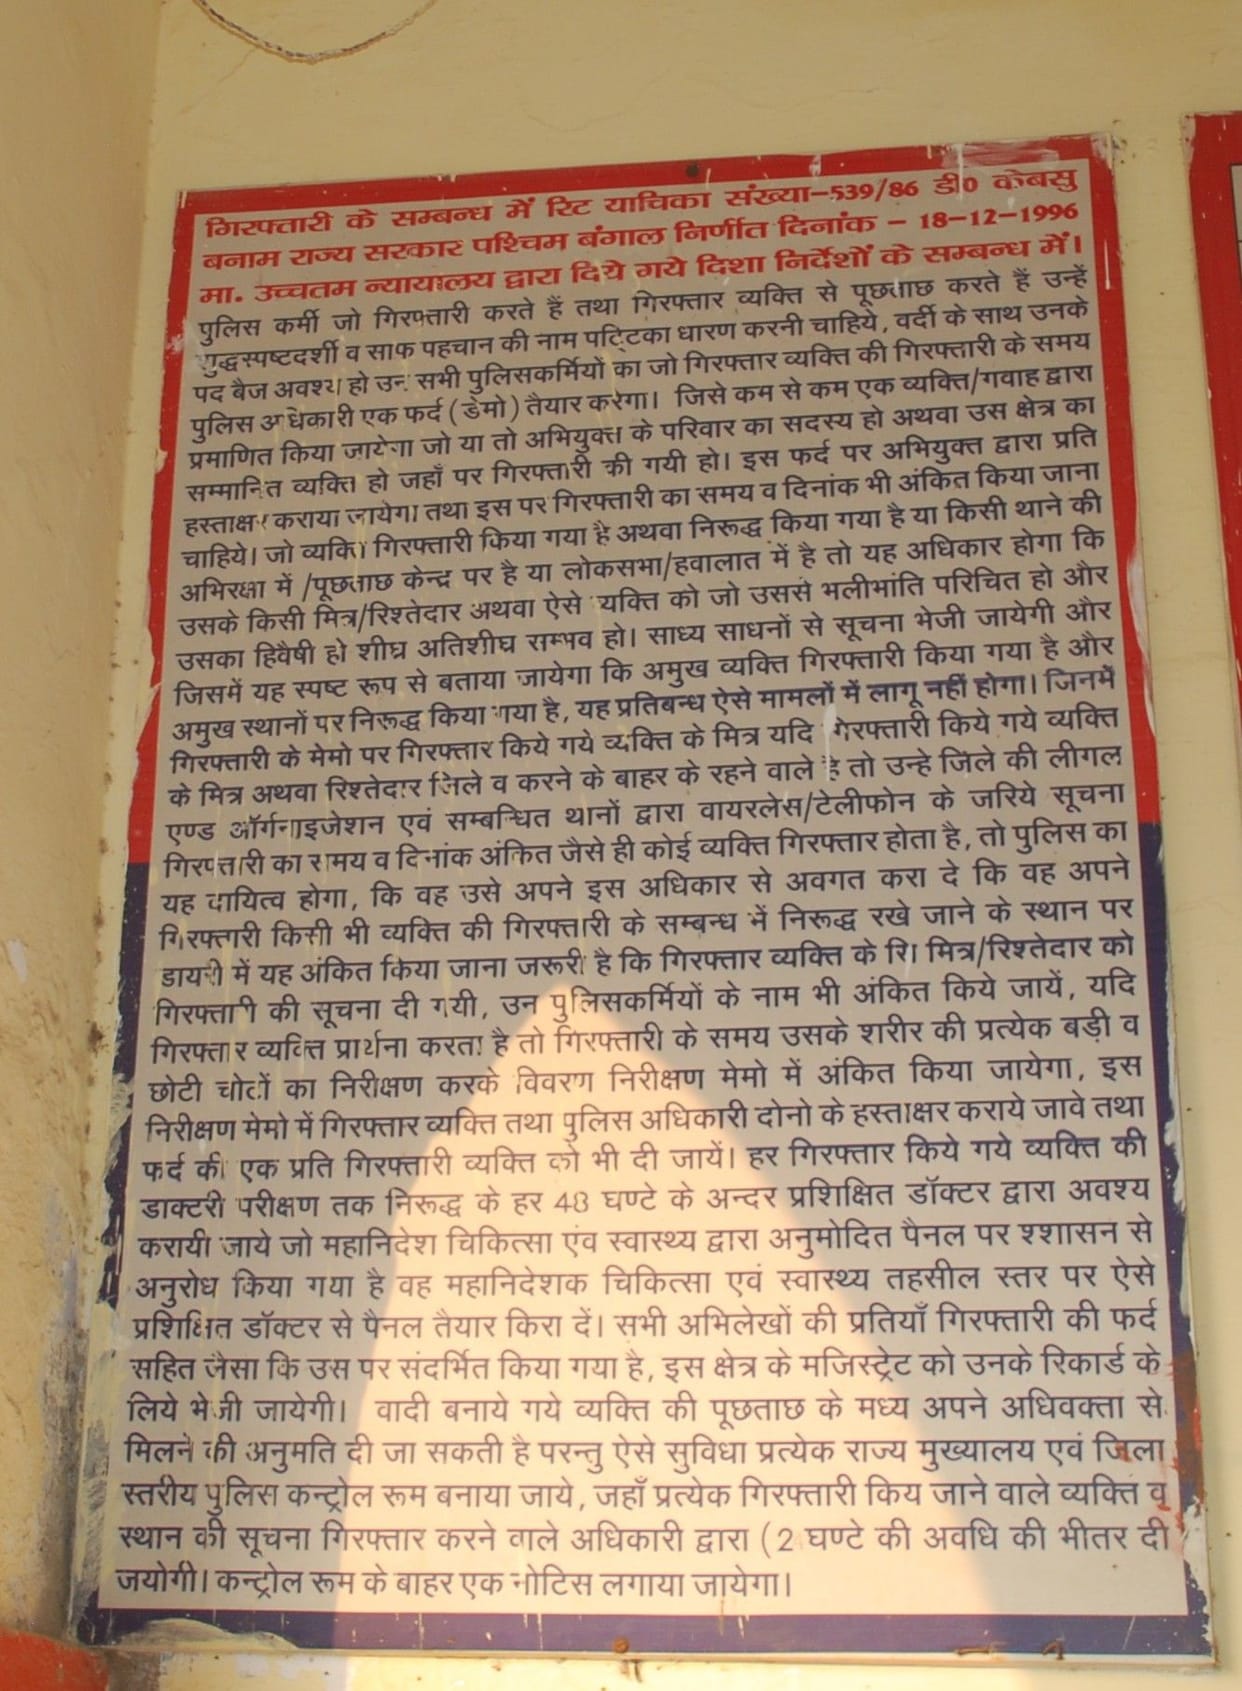 गिरफ्तारी के सम्बन्ध में रिट याचिका संख्या–539/86 डी0 केबसु
बनाम राज्य सरकार पश्चिम बंगाल निर्णीत दिनांक – 18–12–1996
मा. उच्चतम न्यायालय द्वारा दिये गये दिशा निर्देशों के सम्बन्ध में।
पुलिस कर्मी जो गिरफ्तारी करते हैं तथा गिरफ्तार व्यक्ति से पूछताछ करते हैं उन्हें
शुद्धस्पष्टदर्शी व साफ पहचान की नाम पट्टिका धारण करनी चाहिये, वर्दी के साथ उनके
पद बैज अवश्य हो उन सभी पुलिसकर्मियों का जो गिरफ्तार व्यक्ति की गिरफ्तारी के समय
पुलिस अधिकारी एक फर्द (डेमो) तैयार करेगा। जिसे कम से कम एक व्यक्ति/गवाह द्वारा
प्रमाणित किया जायेगा जो या तो अभियुक्त के परिवार का सदस्य हो अथवा उस क्षेत्र का
सम्मानित व्यक्ति हो जहाँ पर गिरफ्तारी की गयी हो। इस फर्द पर अभियुक्त द्वारा प्रति
हस्ताक्षर कराया जायेगा तथा इस पर गिरफ्तारी का समय व दिनांक भी अंकित किया जाना
चाहिये। जो व्यक्ति गिरफ्तारी किया गया है अथवा निरूद्ध किया गया है या किसी थाने की
अभिरक्षा में /पूछताछ केन्द्र पर है या लोकसभा/हवालात में है तो यह अधिकार होगा कि
उसके किसी मित्र/रिश्तेदार अथवा ऐसे व्यक्ति को जो उससे भलीभांति परिचित हो और
उसका हिवैषी हो शीघ्र अतिशीघ्र सम्भव हो। साध्य साधनों से सूचना भेजी जायेगी और
जिसमें यह स्पष्ट रूप से बताया जायेगा कि अमुख व्यक्ति गिरफ्तारी किया गया है और
अमुख स्थानों पर निरूद्ध किया गया है, यह प्रतिबन्ध ऐसे मामलों में लागू नहीं होगा। जिनमें
गिरफ्तारी के मेमो पर गिरफ्तार किये गये व्यक्ति के मित्र यदि गिरफ्तारी किये गये व्यक्ति
के मित्र अथवा रिश्तेदार जिले व करने के बाहर के रहने वाले है तो उन्हे जिले की लीगल
एण्ड ऑर्गनाइजेशन एवं सम्बन्धित थानों द्वारा वायरलेस/टेलीफोन के जरिये सूचना
गिरफ्तारी का समय व दिनांक अंकित जैसे ही कोई व्यक्ति गिरफ्तार होता है, तो पुलिस का
यह दायित्व होगा, कि वह उसे अपने इस अधिकार से अवगत करा दे कि वह अपने
गिरफ्तारी किसी भी व्यक्ति की गिरफ्तारी के सम्बन्ध में निरूद्ध रखे जाने के स्थान पर
डायरी में यह अंकित किया जाना जरूरी है कि गिरफ्तार व्यक्ति के मित्र/रिश्तेदार को
गिरफ्तारी की सूचना दी गयी, उन पुलिसकर्मियों के नाम भी अंकित किये जायें, यदि
गिरफ्तार व्यक्ति प्रार्थना करता है तो गिरफ्तारी के समय उसके शरीर की प्रत्येक बड़ी व
छोटी चोटों का निरीक्षण करके विवरण निरीक्षण मेमो में अंकित किया जायेगा, इस
निरीक्षण मेमो में गिरफ्तार व्यक्ति तथा पुलिस अधिकारी दोनो के हस्ताक्षर कराये जावे तथा
फर्द की एक प्रति गिरफ्तारी व्यक्ति को भी दी जायें। हर गिरफ्तार किये गये व्यक्ति की
डाक्टरी परीक्षण तक निरूद्ध के हर 48 घण्टे के अन्दर प्रशिक्षित डॉक्टर द्वारा अवश्य
करायी जाये जो महानिदेश चिकित्सा एंव स्वास्थ्य द्वारा अनुमोदित पैनल पर श्शासन से
अनुरोध किया गया है वह महानिदेशक चिकित्सा एवं स्वास्थ्य तहसील स्तर पर ऐसे
प्रशिक्षित डॉक्टर से पैनल तैयार किरा दें। सभी अभिलेखों की प्रतियाँ गिरफ्तारी की फर्द
सहित जैसा कि उस पर संदर्भित किया गया है, इस क्षेत्र के मजिस्ट्रेट को उनके रिकार्ड के
लिये भेजी जायेगी। वादी बनाये गये व्यक्ति की पूछताछ के मध्य अपने अधिवक्ता से
मिलने की अनुमति दी जा सकती है परन्तु ऐसे सुविधा प्रत्येक राज्य मुख्यालय एवं जिला
स्तरीय पुलिस कन्ट्रोल रूम बनाया जाये, जहाँ प्रत्येक गिरफ्तारी किय जाने वाले व्यक्ति व
स्थान की सूचना गिरफ्तार करने वाले अधिकारी द्वारा (2 घण्टे की अवधि की भीतर दी
जयोगी। कन्ट्रोल रूम के बाहर एक नोटिस लगाया जायेगा।